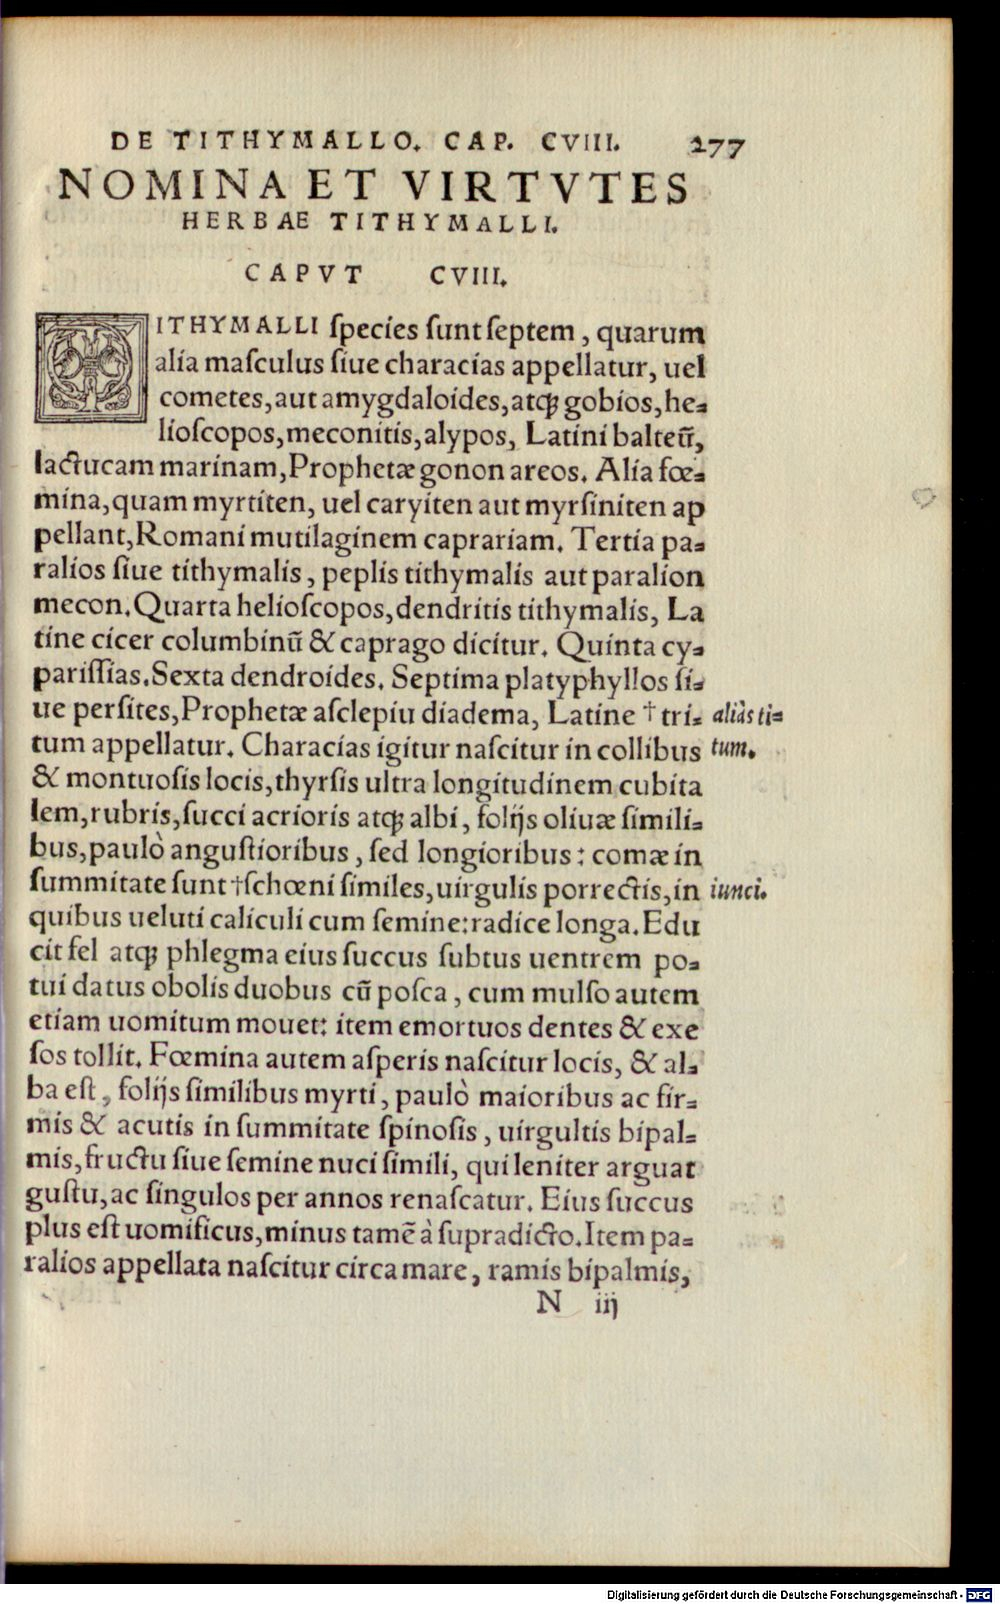 DE TITHYMALLO. CAP. CVIII. 277
NOMINA ET VIRTVTES
HERBAE TITHYMALLI.
CAPVT CVIII.
TITHYMALLI ſpecies ſunt ſeptem, quarum
alia maſculus ſiue characias appellatur, uel
cometes, aut amygdaloides, atqꝫ gobios, he⸗
lioſcopos, meconitis, alypos, Latini balteũ,
lactucam marinam, Prophetæ gonon areos. Alia fœ⸗
mina, quam myrtiten, uel caryiten aut myrſiniten ap
pellant, Romani mutilaginem caprariam. Tertia pa⸗
ralios ſiue tithymalis, peplis tithymalis aut paralion
mecon. Quarta helioſcopos, dendritis tithymalis, La
tine cicer columbinũ & caprago dicitur. Quinta cy⸗
pariſſias. Sexta dendroides. Septima platyphyllos ſi⸗
ue perſites, Prophetæ aſclepiu diadema, Latine † tri⸗ aliàs ti⸗
tum appellatur. Characias igitur naſcitur in collibus tum.
& montuoſis locis, thyrſis ultra longitudinem cubita
lem, rubris, ſucci acrioris atqꝫ albi, folijs oliuæ ſimili⸗
bus, paulò anguſtioribus, ſed longioribus: comæ in
ſummitate ſunt †ſchœni ſimiles, uirgulis porrectis, in iunci.
quibus ueluti caliculi cum ſemine: radice longa. Edu
cit fel atqꝫ phlegma eius ſuccus ſubtus uentrem po⸗
tui datus obolis duobus cũ poſca, cum mulſo autem
etiam uomitum mouet: item emortuos dentes & exe
ſos tollit. Fœmina autem aſperis naſcitur locis, & al⸗
ba eſt, folijs ſimilibus myrti, paulò maioribus ac fir⸗
mis & acutis in ſummitate ſpinoſis, uirgultis bipal⸗
mis, fructu ſiue ſemine nuci ſimili, qui leniter arguat
guſtu, ac ſingulos per annos renaſcatur. Eius ſuccus
plus eſt uomificus, minus tamẽ à ſupradicto. Item pa⸗
ralios appellata naſcitur circa mare, ramis bipalmis,
N iij
Digitalisierung gefördert durch die Deutsche Forschungsgemeinschaft - DFG